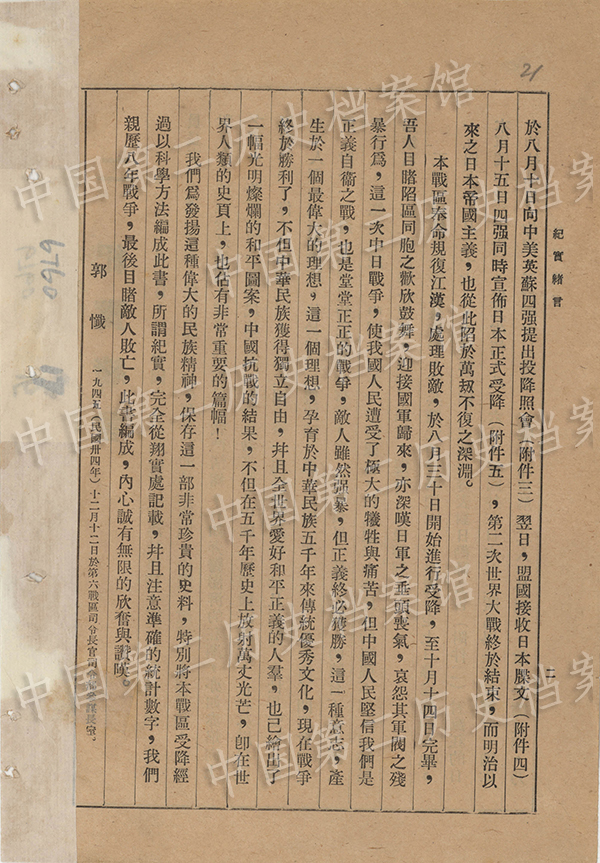 21
紀實緒言
二
於八月十日向中美英蘇四强提出投降照會（附件三）翌日，盟國接收日本牒文（附件四）
八月十五日四强同時宣佈日本正式受降（附件五），第二次世界大戰終於結束，而明治以
來之日本帝國主義，也從此陷於萬刼不復之深淵。
本戰區奉命規復江漢，處理敗敵，於八月三十日開始進行受降，至十月十四日完畢，
吾人目睹陷區同胞之歡欣鼓舞，迎接國軍歸來，亦深嘆日軍之垂頭喪氣，哀怨其軍閥之殘
暴行爲，這一次中日戰爭，使我國人民遭受了極大的犧牲與痛苦，但中國人民堅信我們是
正義自衞之戰，也是堂堂正正的戰爭，敵人雖然强暴，但正義終必獲勝，這一種意志，產
生於一個最偉大的理想，這一個理想，孕育於中華民族五千年來傳統優秀文化，現在戰爭
終於勝利了，不但中華民族獲得獨立自由，幷且全世界愛好和平正義的人羣，也已繪出了
一幅光明燦爛的和平圖案，中國抗戰的結果，不但在五千年歷史上放射萬丈光芒，卽在世
界人類的史頁上，也佔有非常重要的篇幅！
我們爲發揚這種偉大的民族精神，保存這一部非常珍貴的史料，特別將本戰區受降經
過以科學方法編成此書，所謂紀實，完全從翔實處記載，幷且注意準確的統計數字，我們
親歷八年戰爭，最後目睹敵人敗亡，此書編成，內心誠有無限的欣奮與讚嘆。
郭懺
一九四五（民國卅四年）十二月十二日於第六戰區司令長官司
0679
中国第二历史档案馆